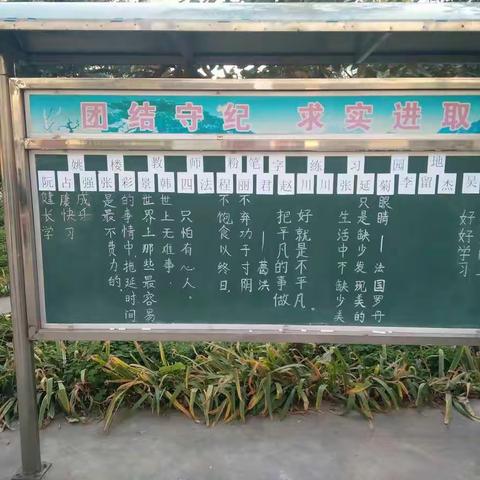 团结守纪 求实进取
姚楼教师粉笔字练习园地
阮占强张彩景韩四法程丽君赵川川张延菊李留杰吴
健长学
康快习
成乐
世界上那些最容易
的事情中,拖延时间
是最不费力的。
世上无难事,
只怕有心人。
不饱食以终日,
不弃功于寸阴
——葛洪
把平凡的事做
好就是不平凡。
生活中不缺少美
只是缺少发现美的
眼睛——法国罗丹
好好学习